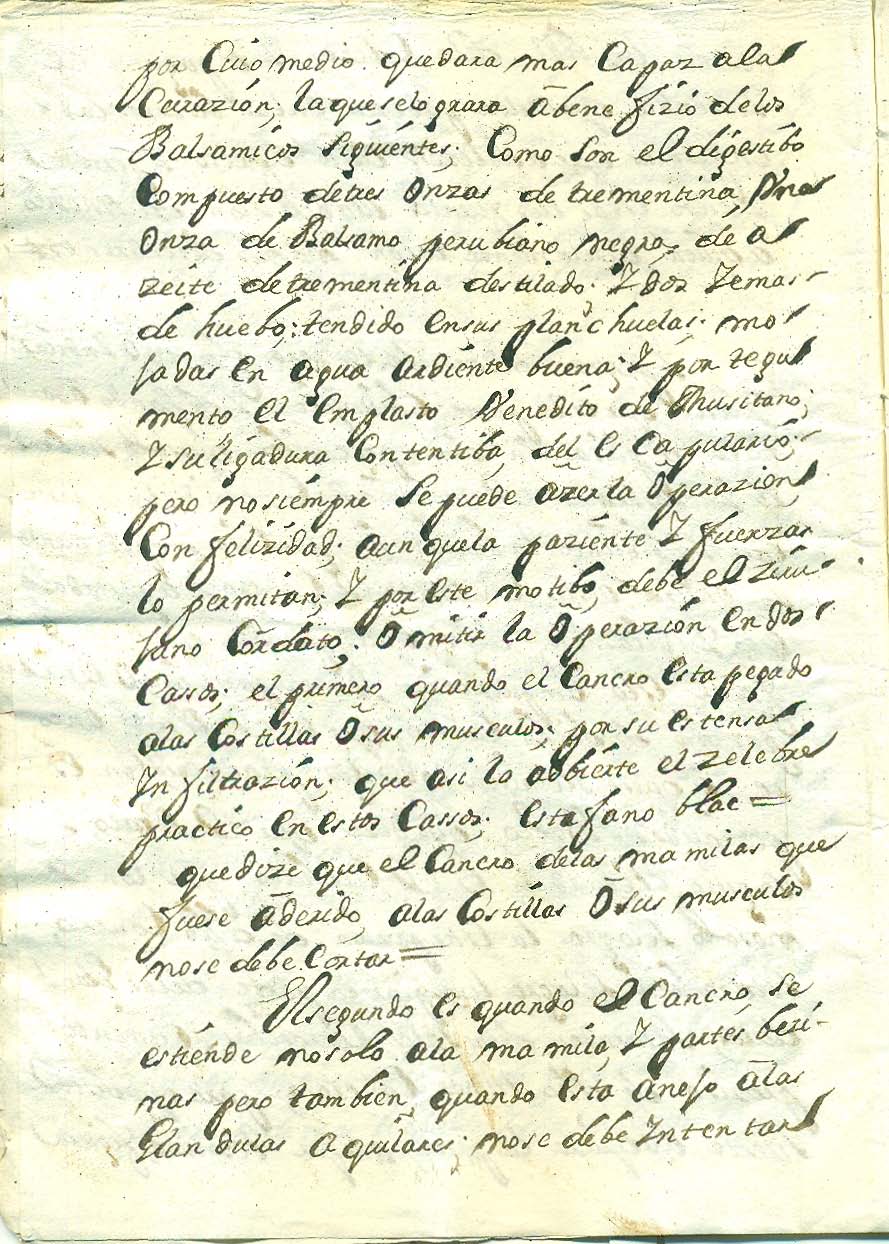 por Cuio medio. quedara mas Capaz ala
Curazión; laqueselograra ā bene fizio delos
Balsamicos Siguiéntes; Como son el digestibo
Compuesto detres Onzas de trementina Vna
Onza de Balsamo perubiano negro, dé a
zeite detrementina destilado. Y dos Yemas-
de huebo; tendido Ensus planchuelas; mo
jadas En agua ardiénte buena; Y por tegu
mento El Emplasto Venedito de Musitano;
Y suligadura Contentiba, del Es Capulario;-
pero nosiémpre Se puede āzerla Operazion
Con felizidad; aun quela paziénte Y fuerzas
lo permitan; Y por Este motibo, debe el Ziru
jano Cordato; Omitir la Operazión En dos
Cassos; el primero quando el Cancro Esta pegado
alas Costillas O sus musculos; por su Estensa
Ynfiltrazión; que asi lo adbiérte el Zelebre
practico En Estos Cassos; Estefano blac=
quedize que el Cancro delas mamilas que
fuese āderido, alas Costillas O sus musculos
nose debe Cortar=
Elsegundo Es quando el Cancro, Se
estiénde nosolo ala mamila, Y partes bezi-
nas pero tambien, quando Esta anejo ālas
Glandulas aquilares; nose debe Yntentar